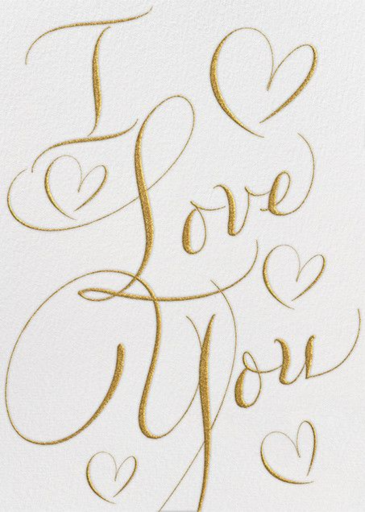 I
Love
You